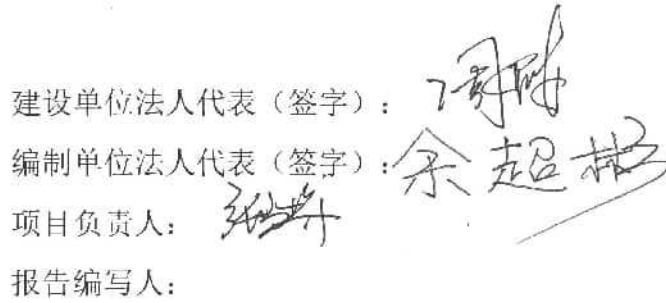 建设单位法人代表（签字）：
编制单位法人代表（签字）：余超彬
项目负责人：
报告编写人：